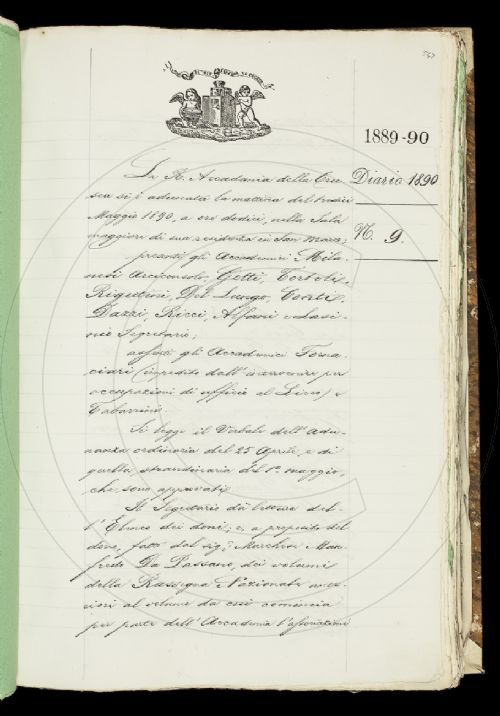 767
1889-90
Diario 1890
N. 9.
La R. Accademia della Cru-
sca si è adunata la mattina del
Maggio 1890, a ore dodici, nella Sala
maggiore di sua residenza in San Marco;
presenti gli Accademici Mila-
nesi Arciconsolo, Gotti, Tortoli,
Rigutini, Del Lungo, Conti,
Dazzi, Ricci, Alfani e Lasi-
nio Segretario;
assenti gli Accademici Forna-
ciari (impedito dall' intervenire per
occupazioni di ufficio al Liceo) e
Tabarrini.
Si legge il Verbale dell' Adu-
nanza ordinaria del 25 Aprile, e di
quella straordinaria del 1º maggio,
che sono approvati.
Il Segretario dà lettura del-
l' Elenco dei doni; e, a proposito del
dono, fatto dal sig. Marchese Man-
fredo Da Passano, dei volumi
della Rassegna Nazionale ante-
riori al volume da cui comincia
per parte dell' Accademia l' associazione